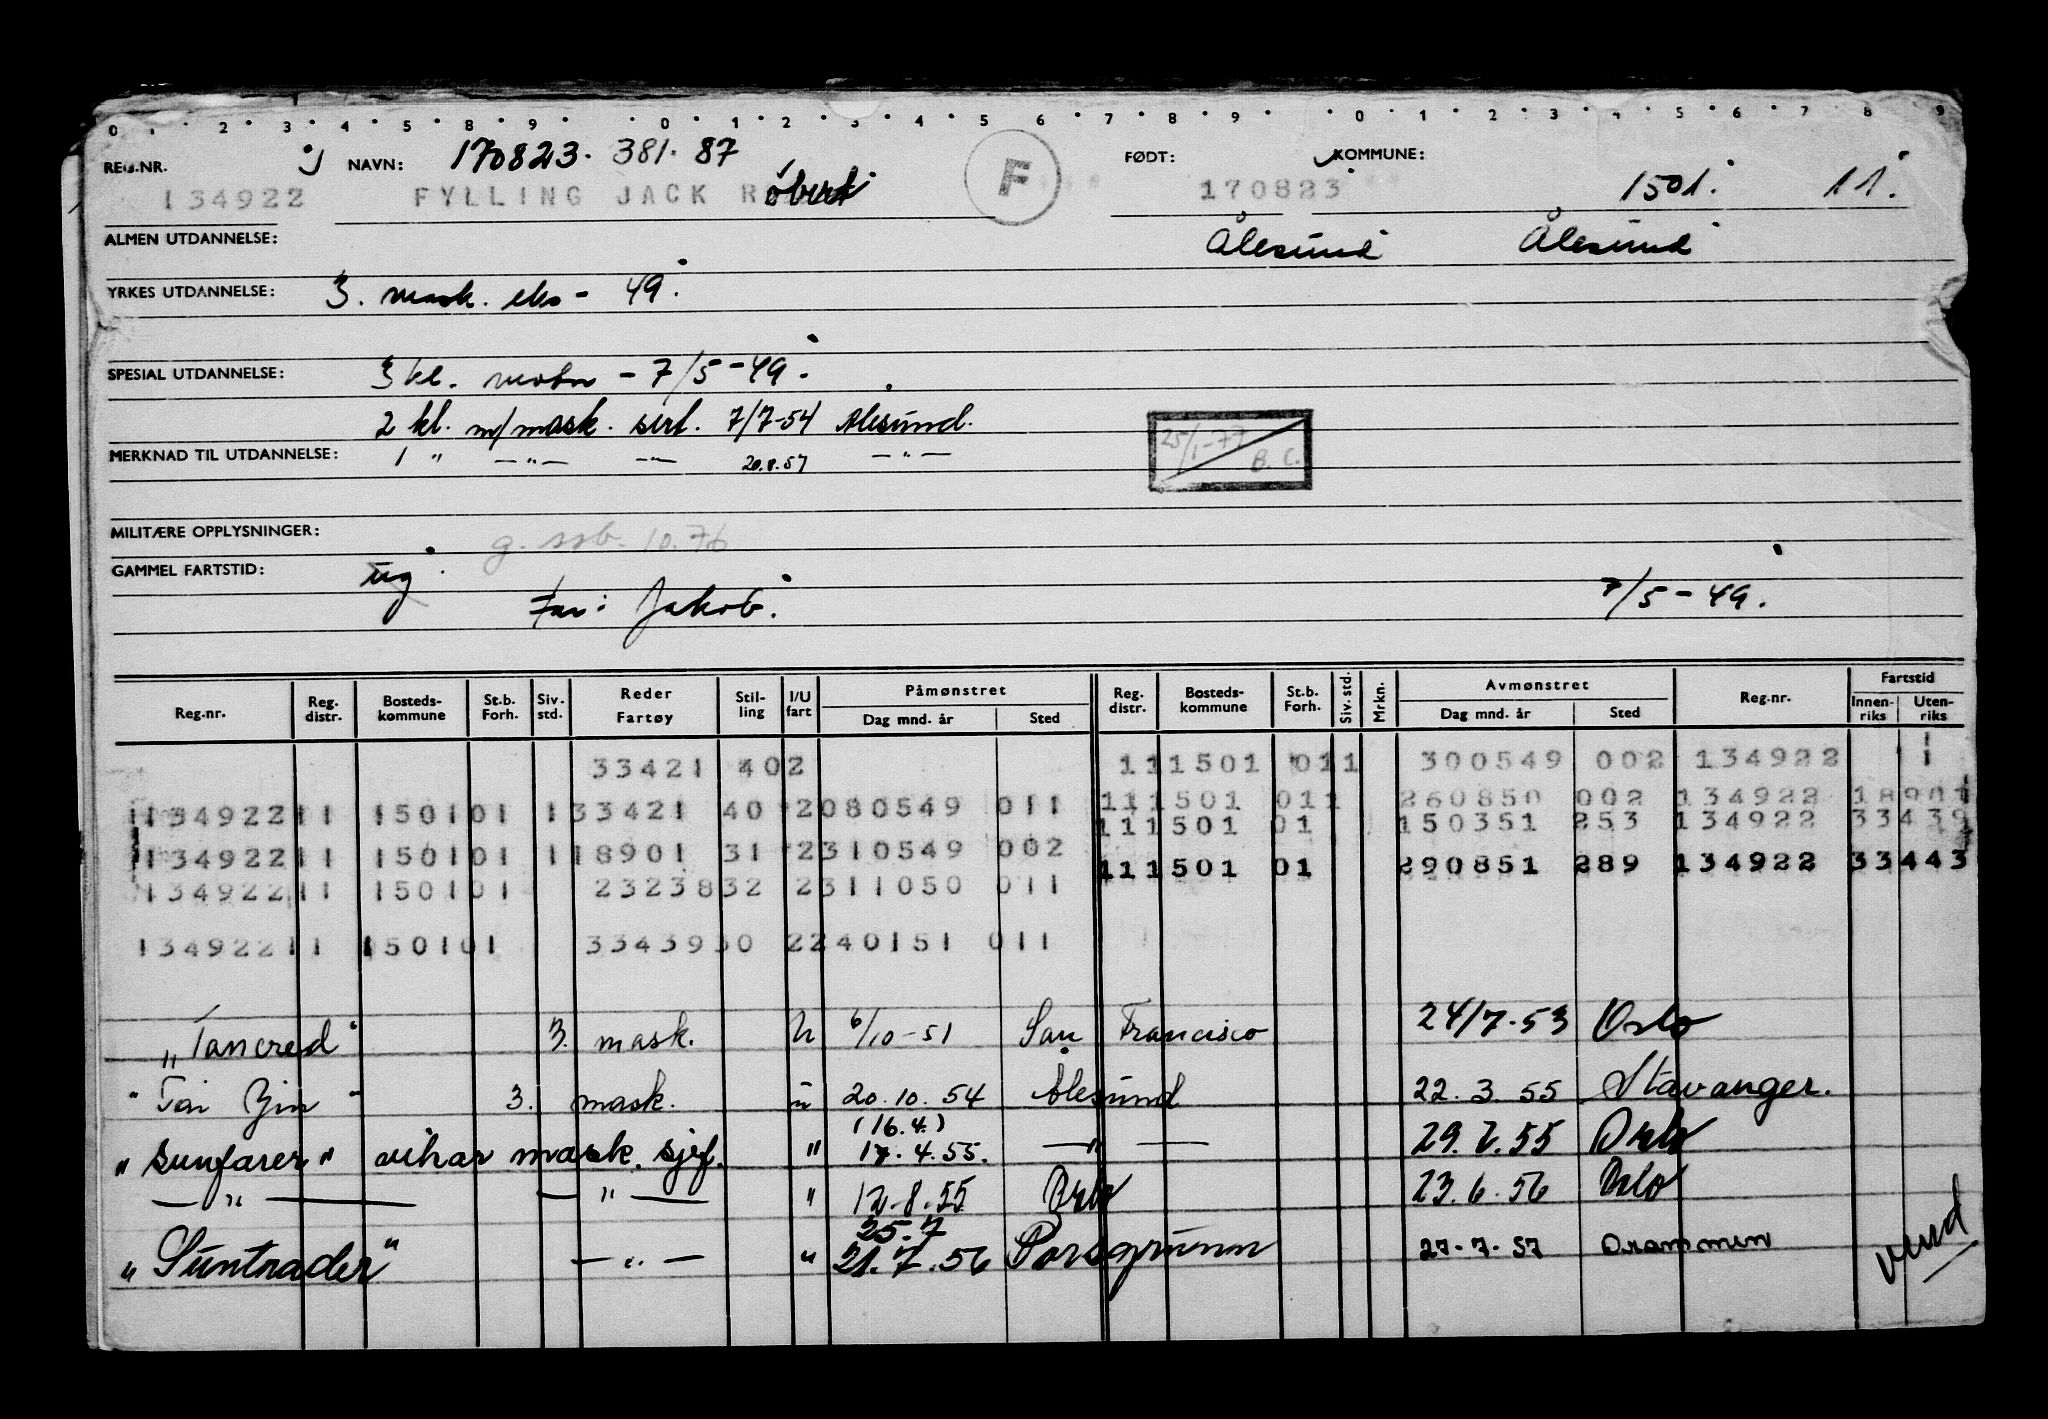 0 1 2 3 4 5 8 9 0 1 2 3 4 5 6 7 8 9 0 1 2 3 4 5 6 7 8 9
REG.NR. NAVN: 170823. 381. 87 F FØDT: KOMMUNE:
134922 FYLLING JACK Robert 170823 1501. 11.
ALMEN UTDANNELSE: Ålesund Ålesund
YRKES UTDANNELSE: 3. mask. eks - 49.
SPESIAL UTDANNELSE: 3 kl. motor - 7/5 - 49.
2 kl. m/mask. sert. 7/7-54 Ålesund.
MERKNAD TIL UTDANNELSE: 1 " — " — — " — 20.8.57 — " —
25/1-77 B.C.
MILITÆRE OPPLYSNINGER: g. ssb. 10.76
GAMMEL FARTSTID: ug
Far: Jakob. 7/5 - 49.
Reg.nr. Reg. distr. Bosteds-kommune St.b. Forh. Siv. std. Reder Fartøy Stil-ling I/U fart Påmønstret Dag mnd. år Sted Reg. distr. Bosteds-kommune St.b. Forh. Siv. std. Mrkn. Avmønstret Dag mnd. år Sted Reg.nr. Fartstid Innen-riks Uten-riks
33421 402 111501 011 300549 002 134922 1
134922 11 150101 133421 40 2080549 011 111501 011 260850 002 134922 18901
111501 01 150351 253 134922 33439
134922 11 150101 118901 31 2310549 002 111501 01 290851 289 134922 33443
134922 11 150101 2323832 2311050 011
134922 11 150101 3343930 2240151 011
"Tancred" 3. mask. U 6/10-51 San Francisco 24/7-53 Oslo
"Tai Yin" 3. mask. u 20.10.54 Ålesund 22.3.55 Stavanger.
(16.4.)
"Sunfarer" vikar mask. sjef. " 17.4.55. — " — 29.6.55 Oslo
— " — — " — " 12.8.55 Oslo 23.6.56 Oslo
25.7
"Suntrader" — " — " 21.7.56 Porsgrunn 27-7-57 Drammen
vend